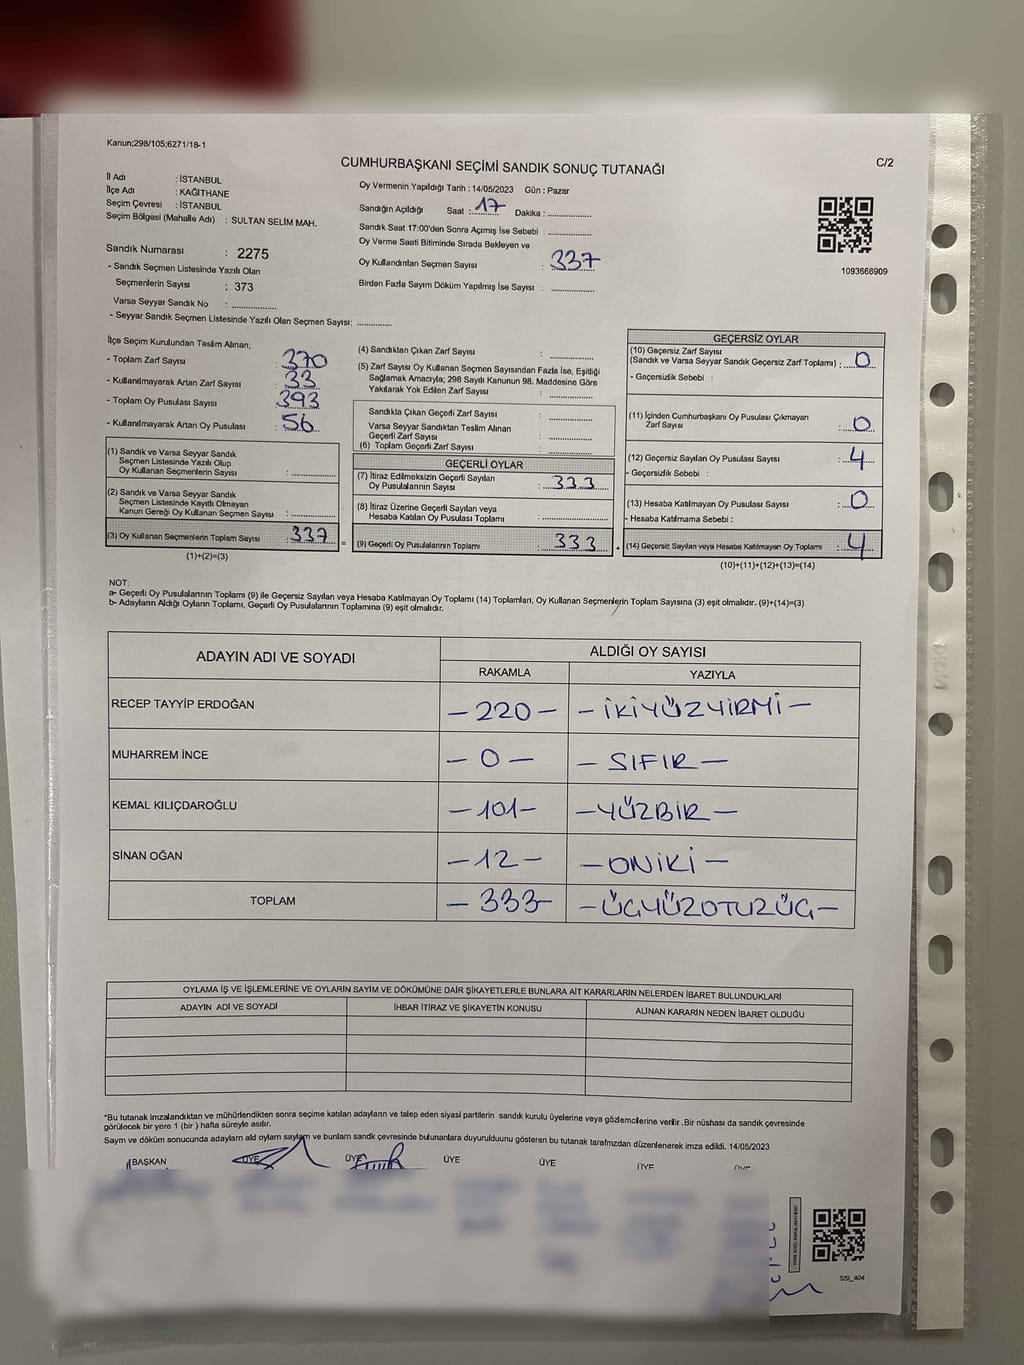 Kanun;298/105;6271/18-1
CUMHURBAŞKANI SEÇİMİ SANDIK SONUÇ TUTANAĞI
C/2
İl Adı : İSTANBUL
İlçe Adı : KAĞITHANE
Seçim Çevresi : İSTANBUL
Seçim Bölgesi (Mahalle Adı) : SULTAN SELİM MAH.
Sandık Numarası : 2275
- Sandık Seçmen Listesinde Yazılı Olan
Seçmenlerin Sayısı : 373
Varsa Seyyar Sandık No : ..............
- Seyyar Sandık Seçmen Listesinde Yazılı Olan Seçmen Sayısı: ............
Oy Vermenin Yapıldığı Tarih : 14/05/2023 Gün : Pazar
Sandığın Açıldığı Saat : 17 Dakika : ..............
Sandık Saat 17:00'den Sonra Açımış İse Sebebi : ..............
Oy Verme Saati Bitiminde Sırada Bekleyen ve
Oy Kullandırılan Seçmen Sayısı : 337
Birden Fazla Sayım Döküm Yapılmış İse Sayısı : ..............
1093668909
İlçe Seçim Kurulundan Teslim Alınan;
- Toplam Zarf Sayısı : 370
- Kullanılmayarak Artan Zarf Sayısı : 33
- Toplam Oy Pusulası Sayısı : 393
- Kullanılmayarak Artan Oy Pusulası : 56
(1) Sandık ve Varsa Seyyar Sandık
Seçmen Listesinde Yazılı Olup
Oy Kullanan Seçmenlerin Sayısı : ..............
(2) Sandık ve Varsa Seyyar Sandık
Seçmen Listesinde Kayıtlı Olmayan
Kanun Gereği Oy Kullanan Seçmen Sayısı : ..............
(3) Oy Kullanan Seçmenlerin Toplam Sayısı : 337
(1)+(2)=(3)
(4) Sandıktan Çıkan Zarf Sayısı : ..............
(5) Zarf Sayısı Oy Kullanan Seçmen Sayısından Fazla İse, Eşitliği
Sağlamak Amacıyla; 298 Sayılı Kanunun 98. Maddesine Göre
Yakılarak Yok Edilen Zarf Sayısı : ..............
Sandıkta Çıkan Geçerli Zarf Sayısı : ..............
Varsa Seyyar Sandıktan Teslim Alınan
Geçerli Zarf Sayısı : ..............
(6) Toplam Geçerli Zarf Sayısı : ..............
GEÇERLİ OYLAR
(7) İtiraz Edilmeksizin Geçerli Sayılan
Oy Pusulalarının Sayısı : 333
(8) İtiraz Üzerine Geçerli Sayılan veya
Hesaba Katılan Oy Pusulası Toplamı : ..............
= (9) Geçerli Oy Pusulalarının Toplamı : 333
GEÇERSİZ OYLAR
(10) Geçersiz Zarf Sayısı
(Sandık ve Varsa Seyyar Sandık Geçersiz Zarf Toplamı) : 0
- Geçersizlik Sebebi :
(11) İçinden Cumhurbaşkanı Oy Pusulası Çıkmayan
Zarf Sayısı : 0
(12) Geçersiz Sayılan Oy Pusulası Sayısı : 4
- Geçersizlik Sebebi :
(13) Hesaba Katılmayan Oy Pusulası Sayısı : 0
- Hesaba Katılmama Sebebi :
+ (14) Geçersiz Sayılan veya Hesaba Katılmayan Oy Toplamı : 4
(10)+(11)+(12)+(13)=(14)
NOT:
a- Geçerli Oy Pusulalarının Toplamı (9) ile Geçersiz Sayılan veya Hesaba Katılmayan Oy Toplamı (14) Toplamları, Oy Kullanan Seçmenlerin Toplam Sayısına (3) eşit olmalıdır. (9)+(14)=(3)
b- Adayların Aldığı Oyların Toplamı, Geçerli Oy Pusulalarının Toplamına (9) eşit olmalıdır.
ADAYIN ADI VE SOYADI ALDIĞI OY SAYISI
RAKAMLA YAZIYLA
RECEP TAYYİP ERDOĞAN – 220 – – İKİYÜZYİRMİ –
MUHARREM İNCE – 0 – – SIFIR –
KEMAL KILIÇDAROĞLU – 101 – – YÜZBİR –
SİNAN OĞAN – 12 – – ONİKİ –
TOPLAM – 333 – – ÜÇYÜZOTUZÜÇ –
OYLAMA İŞ VE İŞLEMLERİNE VE OYLARIN SAYIM VE DÖKÜMÜNE DAİR ŞİKAYETLERLE BUNLARA AİT KARARLARIN NELERDEN İBARET BULUNDUKLARI
ADAYIN ADI VE SOYADI İHBAR İTİRAZ VE ŞİKAYETİN KONUSU ALINAN KARARIN NEDEN İBARET OLDUĞU
*Bu tutanak imzalandıktan ve mühürlendikten sonra seçime katılan adayların ve talep eden siyasi partilerin sandık kurulu üyelerine veya gözlemcilerine verilir .Bir nüshası da sandık çevresinde
görülecek bir yere 1 (bir ) hafta süreyle asılır.
Sayım ve döküm sonucunda adayların ald oyların sayların ve bunların sandk çevresinde bulunanlara duyurulduunu gösteren bu tutanak tarafmzdan düzenlenerek imza edildi. 14/05/2023
BAŞKAN ÜYE ÜYE ÜYE ÜYE ÜYE ÜYE
SSI_404